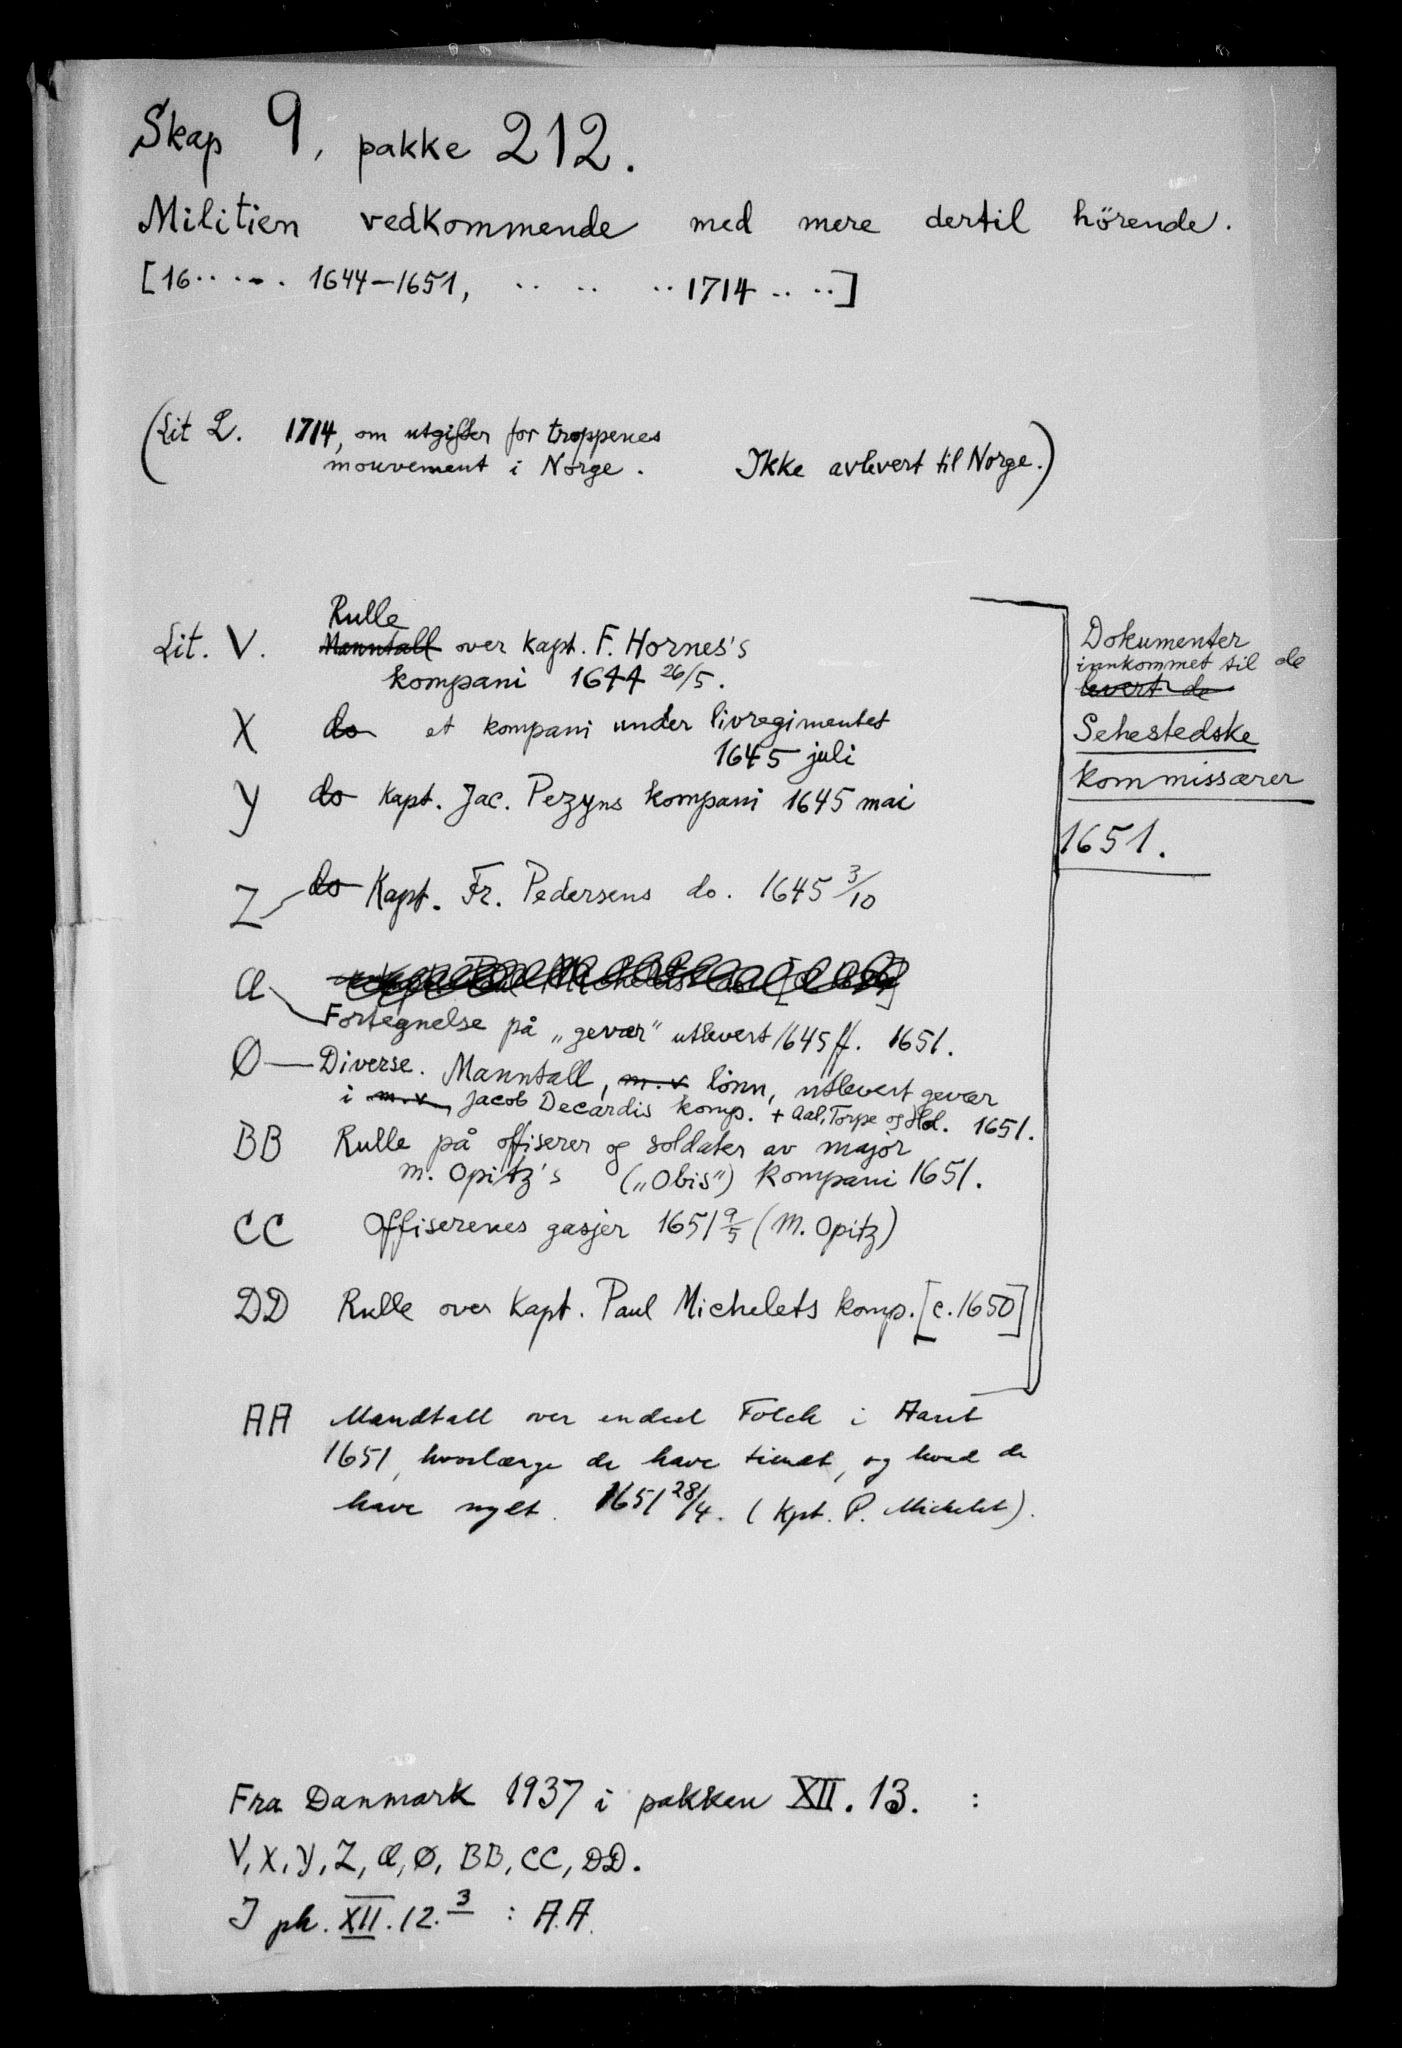 Skap 9, pakke 212.
Militien vedkommende med mere dertil hörende.
[16..... 1644-1651, .. .. .. 1714 .. ..]
(Lit L. 1714, om utgifter for troppenes
mouvement i Norge. Ikke avlevert til Norge.)
Rulle
Lit. V. Manntall over Kapt. F. Hornes's
kompani 1644 26/5.
X do et kompani under livregimentet
1645 juli
Y do Kapt. Jac. Pezyns kompani 1645 mai
Z do Kapt. Fr. Pedersens do. 1645 3/10
Æ
Fortegnelse på „gevær" utlevert 1645 ff. 1651.
Ø Diverse. Manntall, m.v. lönn, utlevert gevær
i m.v. Jacob Decardis komp. + Aal, Torpe og Hol. 1651.
BB Rulle på offiserer og soldater av major
M. Opitz's („Obis") kompani 1651.
CC Offiserenes gasjer 1651 9/5 (M. Opitz)
DD Rulle over Kapt. Paul Michelets komp. [c. 1650]
Dokumenter
innkommet til de
levert de
Sehestedske
kommissærer
1651.
AA Mandtall over endeel Folck i Aaret
1651, hvorlænge de have tient, og hvad de
have nytt. 1651 28/4. (Kpt. P. Michelet).
Fra Danmark 1937 i pakken XII. 13. :
V, X, Y, Z, Æ, Ø, BB, CC, DD.
I pk. XII. 12.3 : A.A.